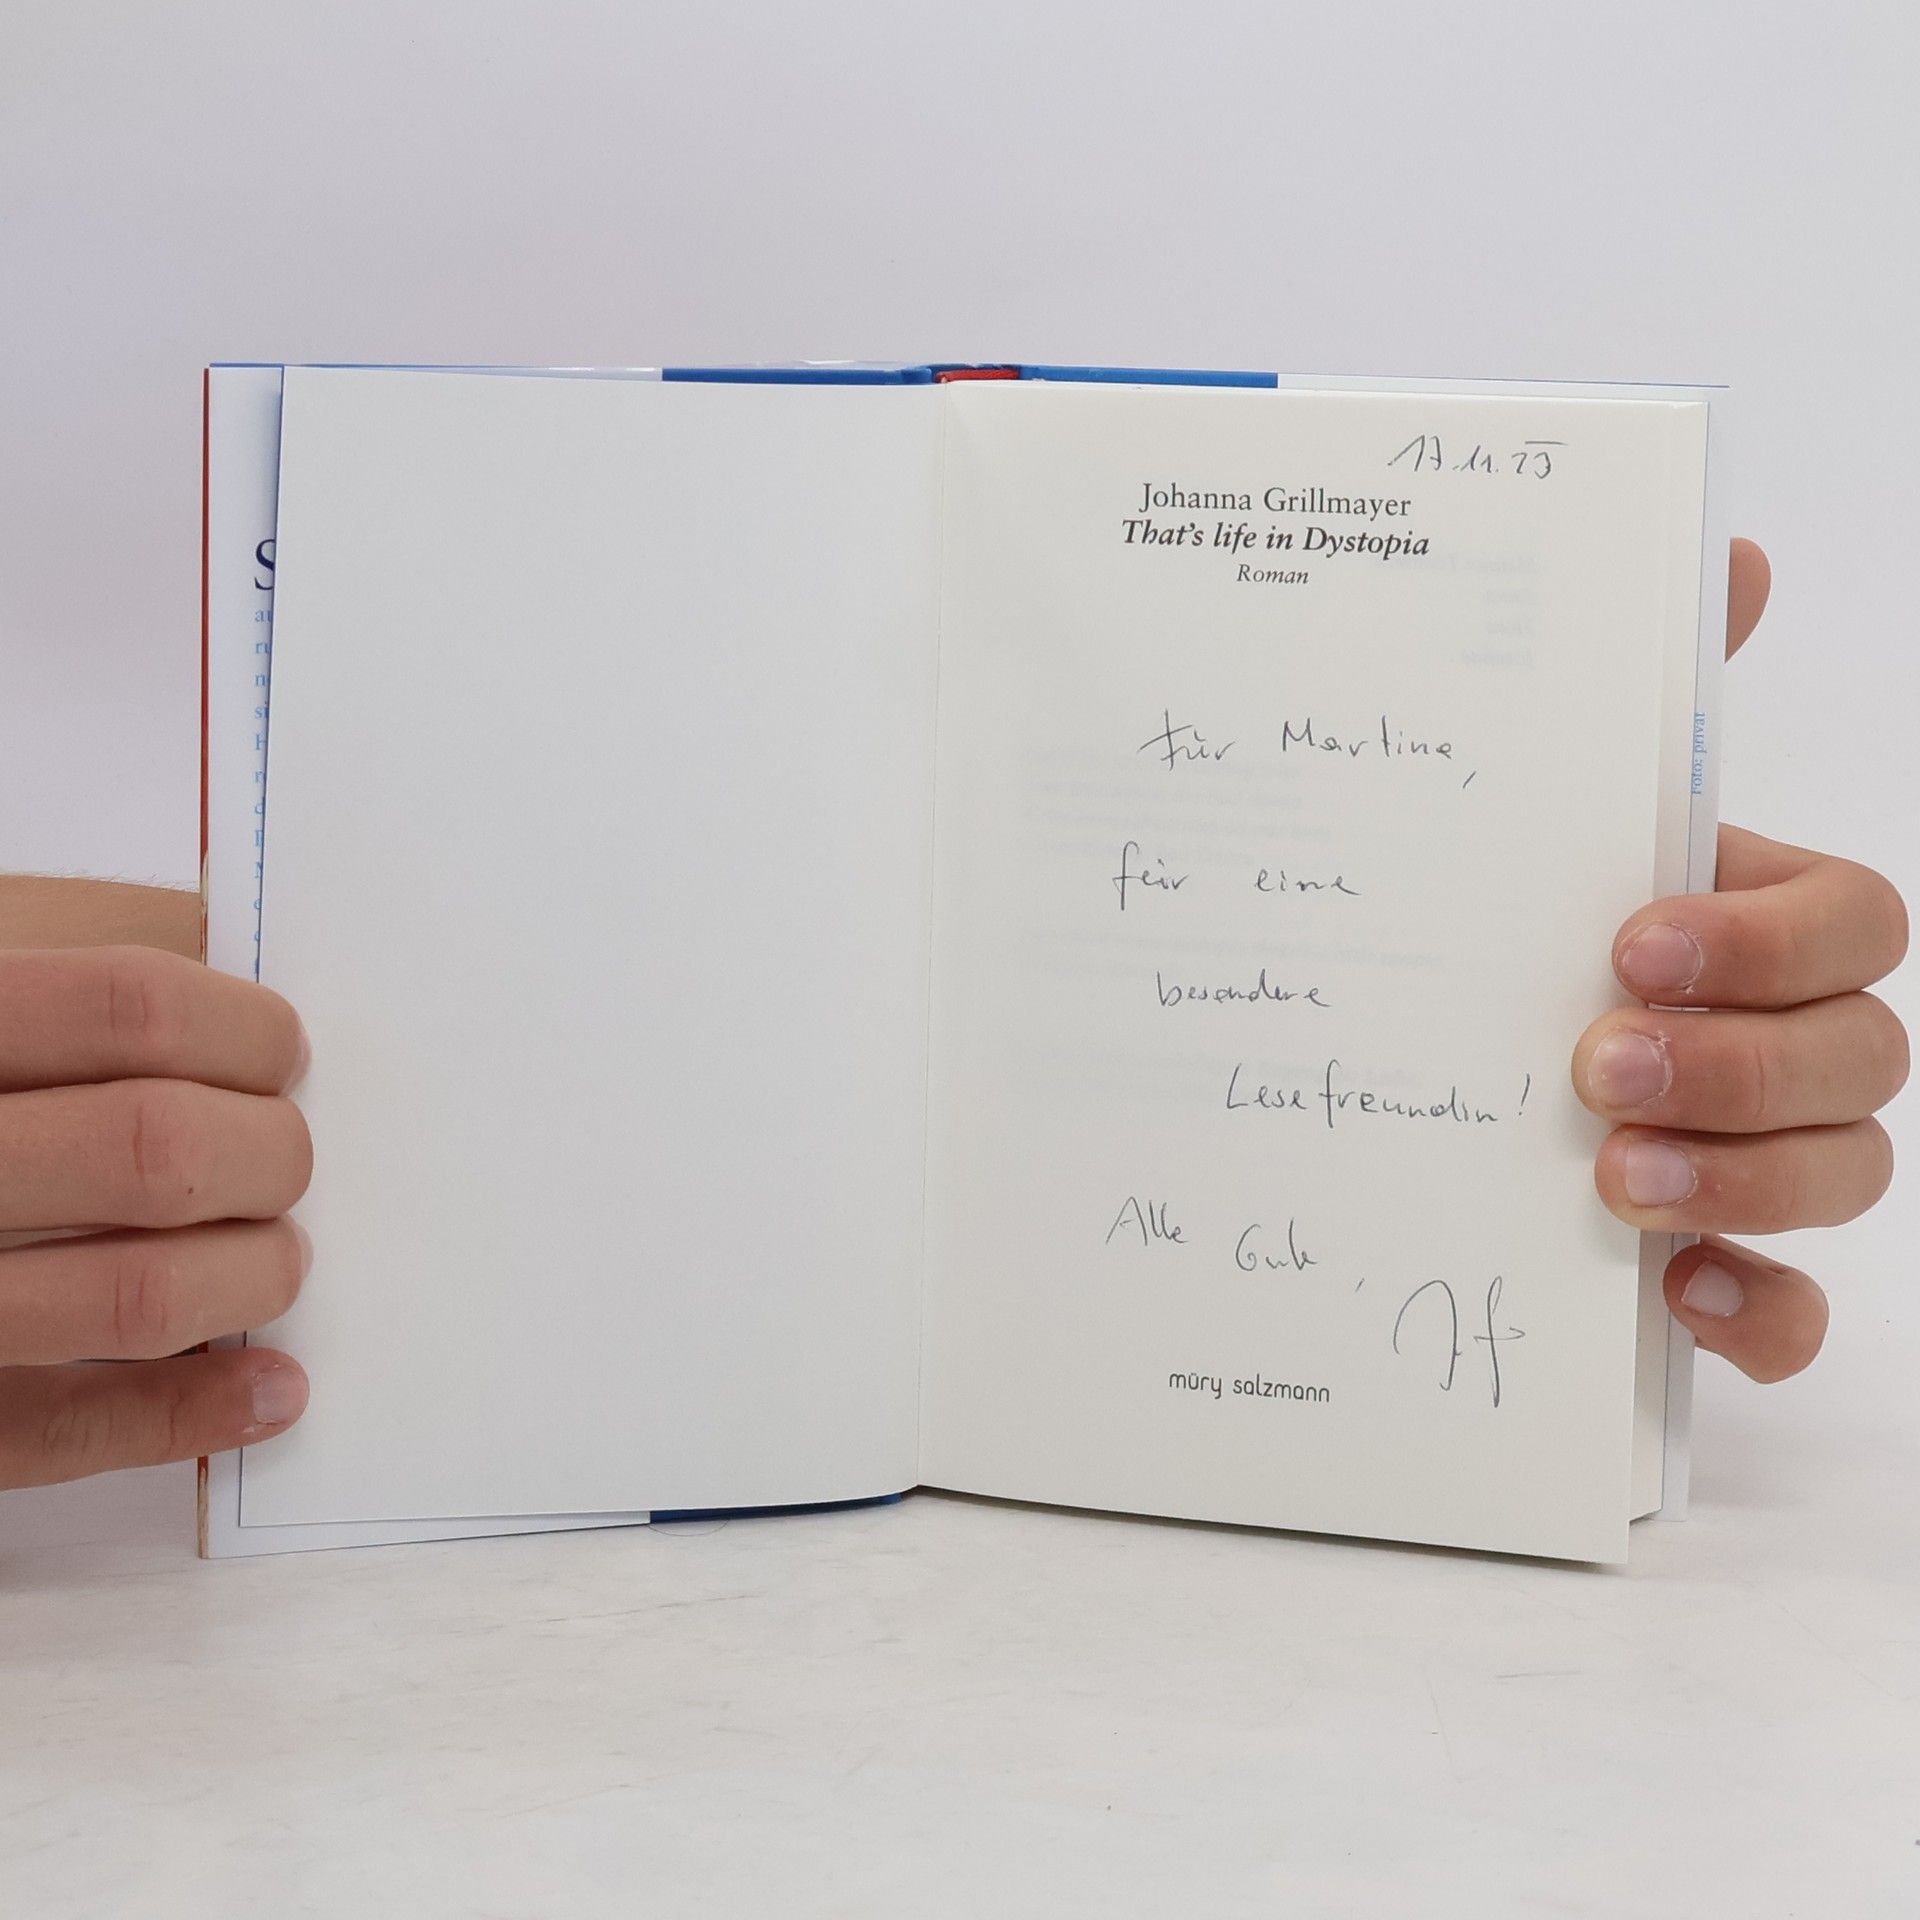 17.11.23
Johanna Grillmayer
That's life in Dystopia
Roman
Für Martina,
für eine
besondere
Lesefreundin!
Alles Gute,
müry salzmann
Foto: privat